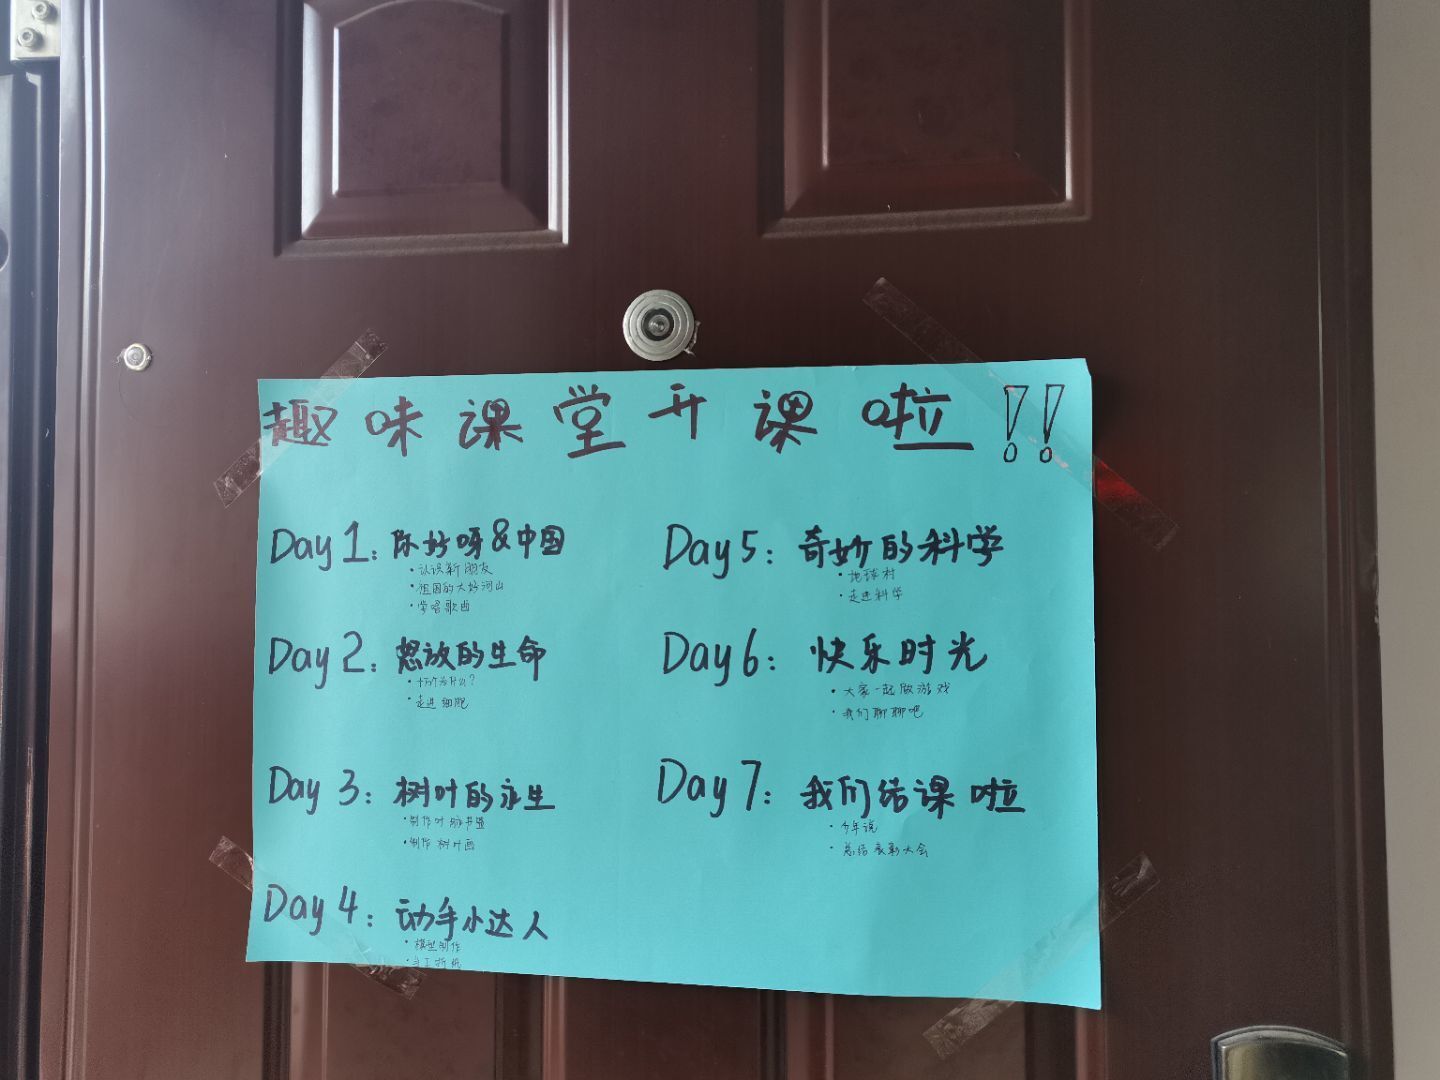 趣味课堂开课啦!!
Day 1: 你好呀&中国
·认识新朋友
·祖国的大好河山
·学唱歌曲
Day 2: 怒放的生命
·十万个为什么?
·走进细胞
Day 3: 树叶的永生
·制作叶脉书签
·制作树叶画
Day 4: 动手小达人
·模型制作
·手工折纸
Day 5: 奇妙的科学
·地球村
·走进科学
Day 6: 快乐时光
·大家一起做游戏
·我们聊聊吧
Day 7: 我们结课啦
·少年说
·总结表彰大会